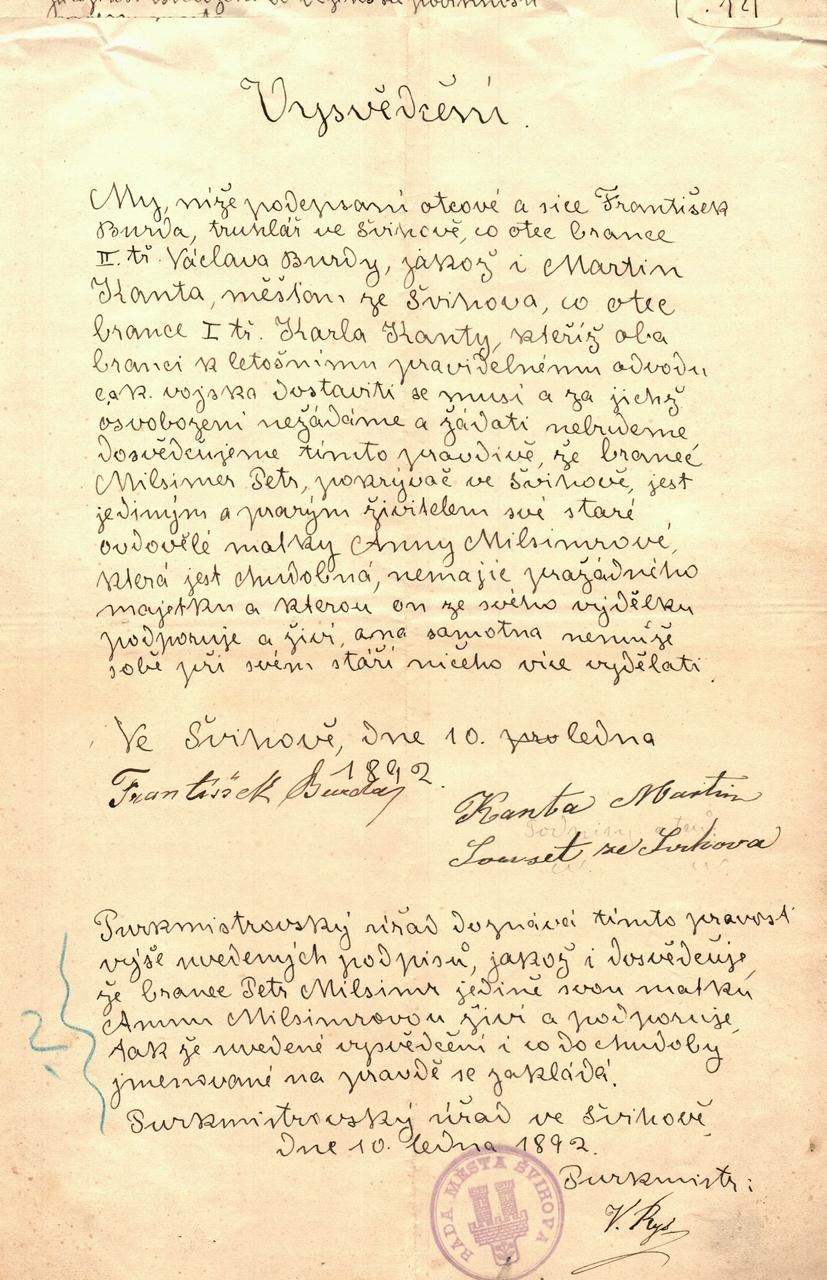 Vysvědčení.
My, níže podepsaní otcové a sice František
Burda, truhlář ve Švihově, co otec brance
II. tř. Václava Burdy, jakož i Martin
Kanta, měšťan ze Švihova, co otec
brance I tř. Karla Kanty, kteříž oba
branci k letošnímu pravidelnému odvodu
c. k. vojska dostaviti se musí a za jichž
osvobození nežádáme a žádati nebudeme
dosvědčujeme tímto pravdivě, že branec
Milsimer Petr, pokrývač ve Švihově, jest
jediným a pravým živitelem své staré
ovdovělé matky Anny Milsimrové,
která jest chudobná, nemajíc pražádného
majetku a kterou on ze svého výdělku
podporuje a živí, ana samotna nemůže
sobě při svém stáří ničeho více vydělati.
Ve Švihově, dne 10. ledna
1892.
František Burda
Kanta Martin
Souset ze Švihova
Purkmistrovský úřad doznává tímto pravost
výše uvedených podpisů, jakož i dosvědčuje,
že branec Petr Milsimr jedině svou matku
Annu Milsimrovou živí a podporuje,
tak že uvedené vysvědčení i co do chudoby
jmenované na pravdě se zakládá.
Purkmistrovský úřad ve Švihově
dne 10. ledna 1892.
Purkmistr:
V. Rys
RADA MĚSTA ŠVIHOVA